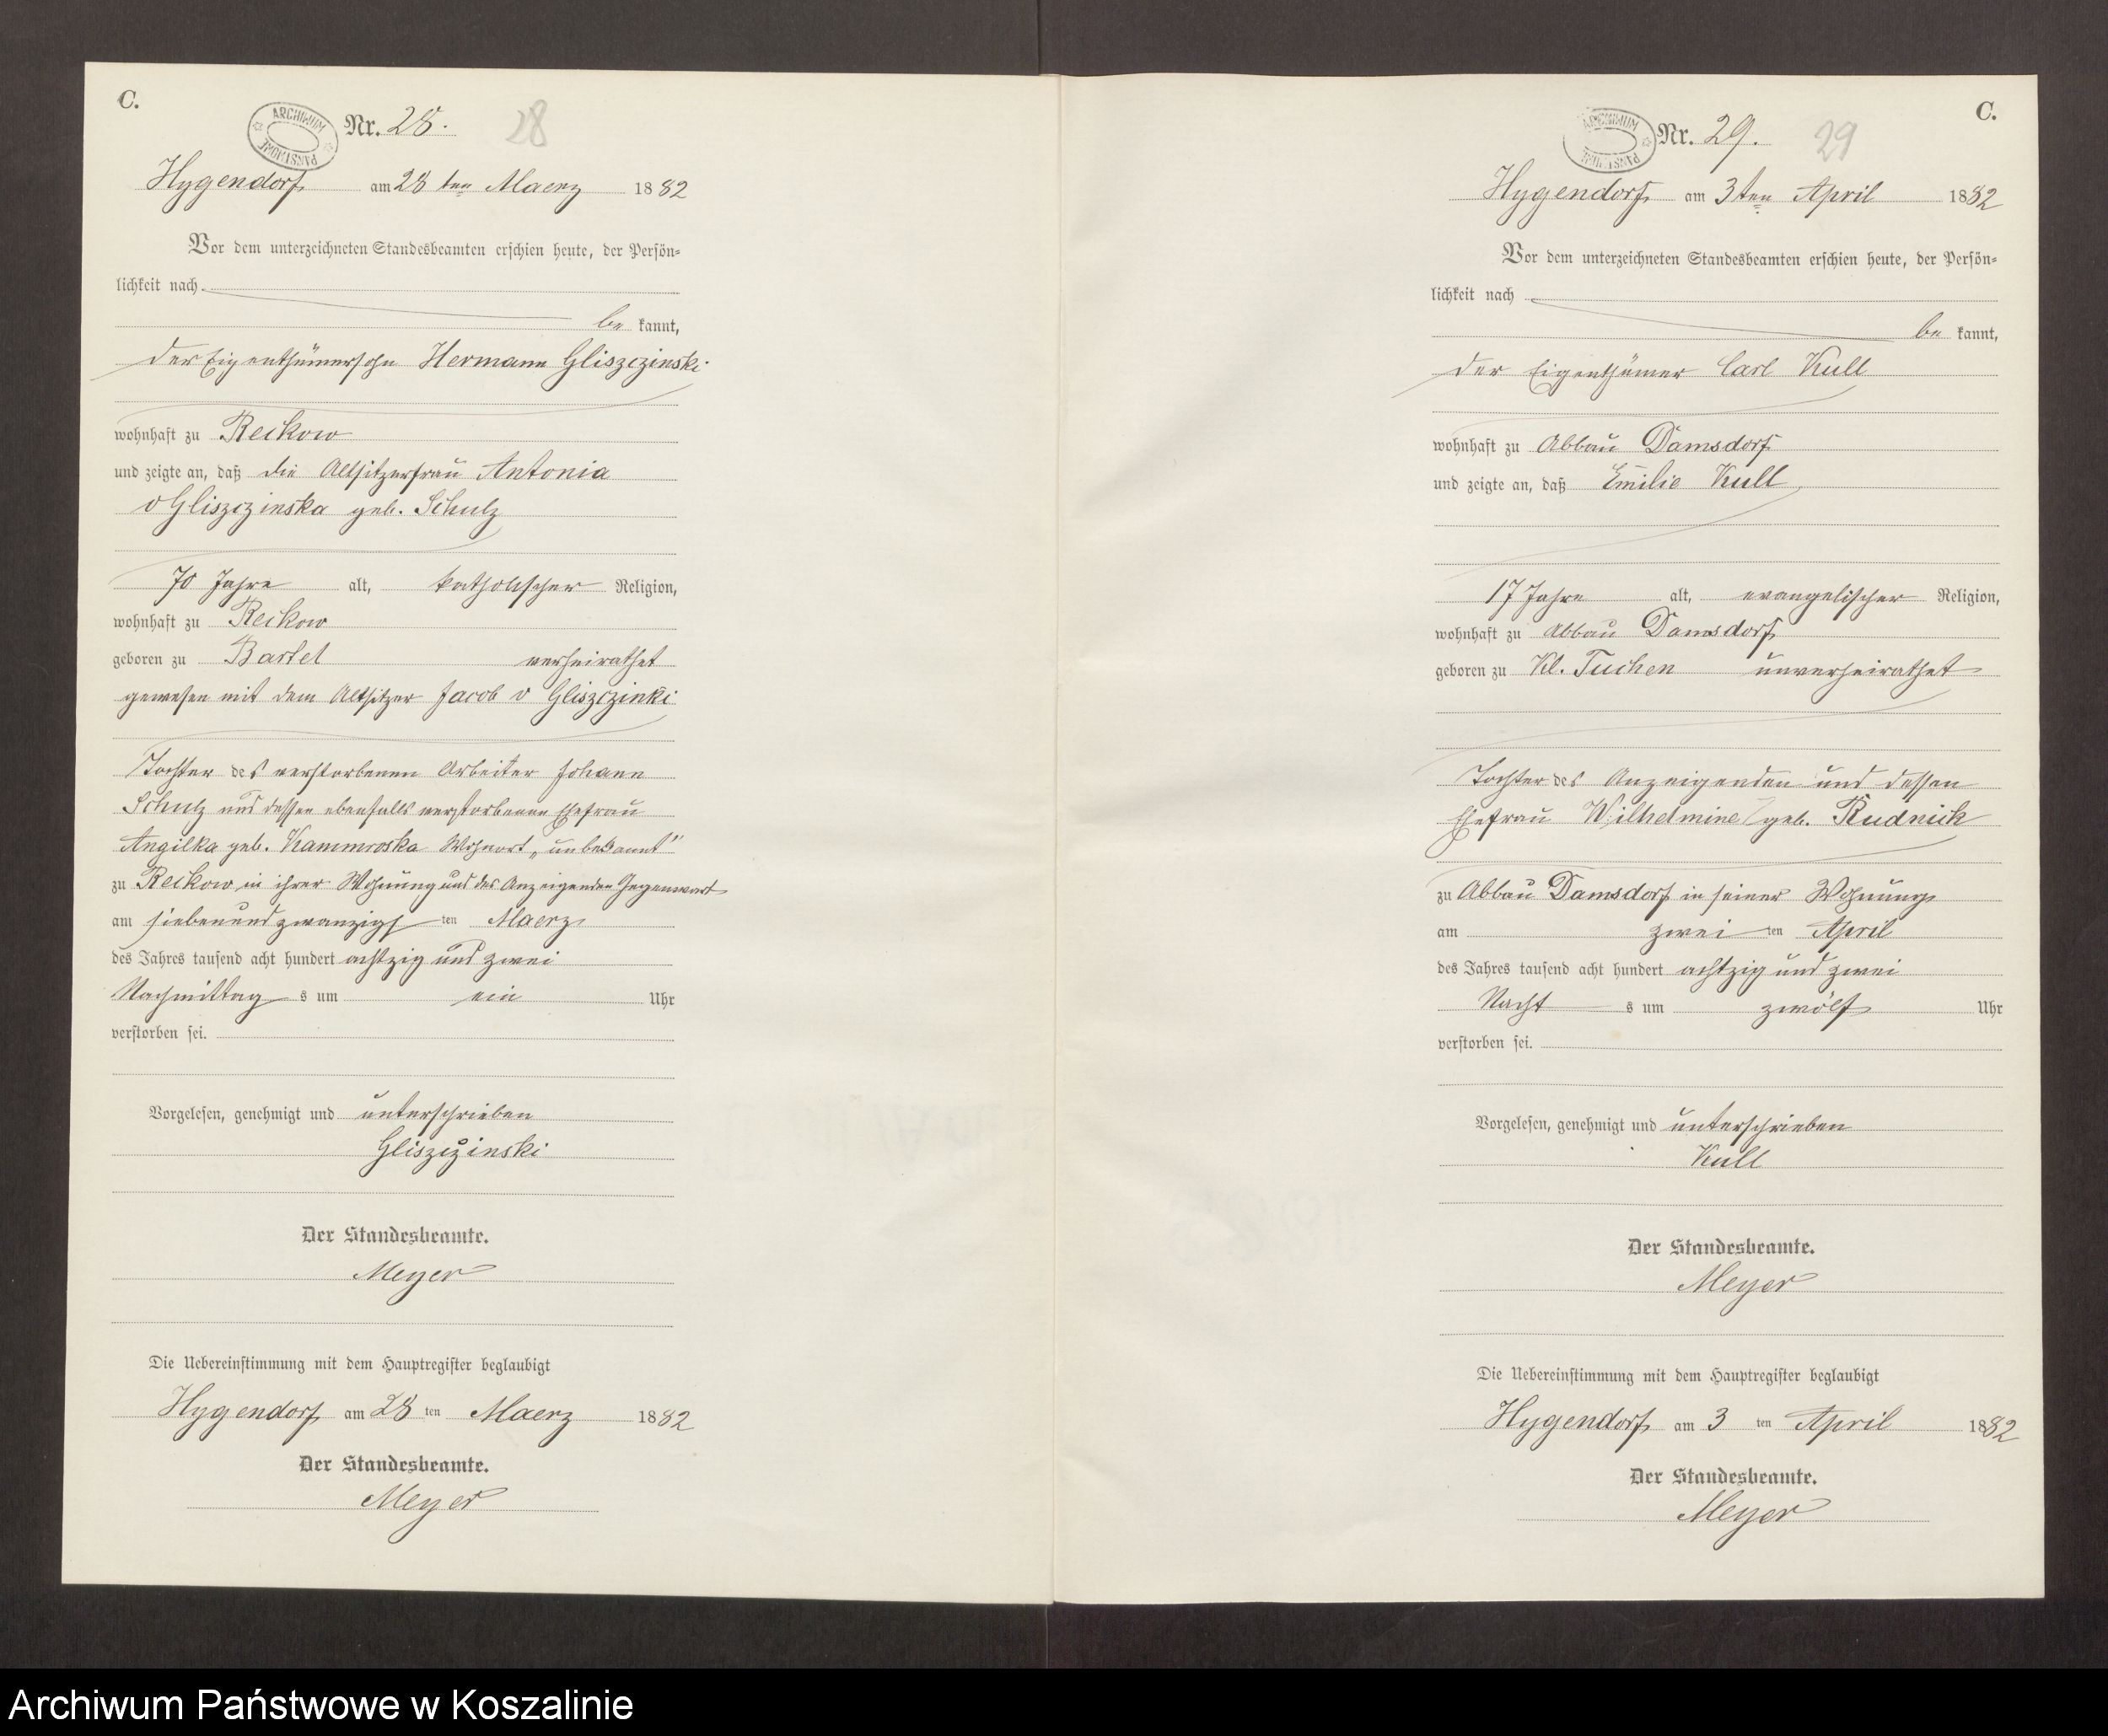 C.
ARCHIWUM PAŃSTWOWE
Nr. 28.
28
Hygendorf am 28 ten Maerz 1882
Vor dem unterzeichneten Standesbeamten erschien heute, der Persön-
lichkeit nach
be kannt,
der Eigenthümersohn Hermann Gliszczinski
wohnhaft zu Reckow
und zeigte an, daß die Altsitzerfrau Antonia
v Gliszczinska geb. Schulz
70 Jahre alt, katholischer Religion,
wohnhaft zu Reckow
geboren zu Bartel verheirathet
gewesen mit dem Altsitzer Jacob v Gliszczinki
Tochter des verstorbenen Arbeiter Johann
Schulz und dessen ebenfalls verstorbenen Ehefrau
Angilka geb. Kammroska Wohnort „unbekannt"
zu Reckow in ihrer Wohnung und des Anzeigenden Gegenwart
am siebenundzwanzigs ten Maerz
des Jahres tausend acht hundert achtzig und zwei
Nachmittag s um ein Uhr
verstorben sei.
Vorgelesen, genehmigt und unterschrieben
Gliszczinski
Der Standesbeamte.
Meyer
Die Uebereinstimmung mit dem Hauptregister beglaubigt
Hygendorf am 28 ten Maerz 1882
Der Standesbeamte.
Meyer
C.
ARCHIWUM PAŃSTWOWE
Nr. 29.
29
Hygendorf am 3ten April 1882
Vor dem unterzeichneten Standesbeamten erschien heute, der Persön-
lichkeit nach
be kannt,
der Eigenthümer Carl Kull
wohnhaft zu Abbau Damsdorf
und zeigte an, daß Emilie Kull
17 Jahre alt, evangelischer Religion,
wohnhaft zu Abbau Damsdorf
geboren zu Kl. Tuchen unverheirathet
Tochter des Anzeigenden und dessen
Ehefrau Wilhelmine geb. Rudnick
zu Abbau Damsdorf in seiner Wohnung
am zwei ten April
des Jahres tausend acht hundert achtzig und zwei
Nacht s um zwölf Uhr
verstorben sei.
Vorgelesen, genehmigt und unterschrieben
Kull
Der Standesbeamte.
Meyer
Die Uebereinstimmung mit dem Hauptregister beglaubigt
Hygendorf am 3 ten April 1882
Der Standesbeamte.
Meyer
Archiwum Państwowe w Koszalinie